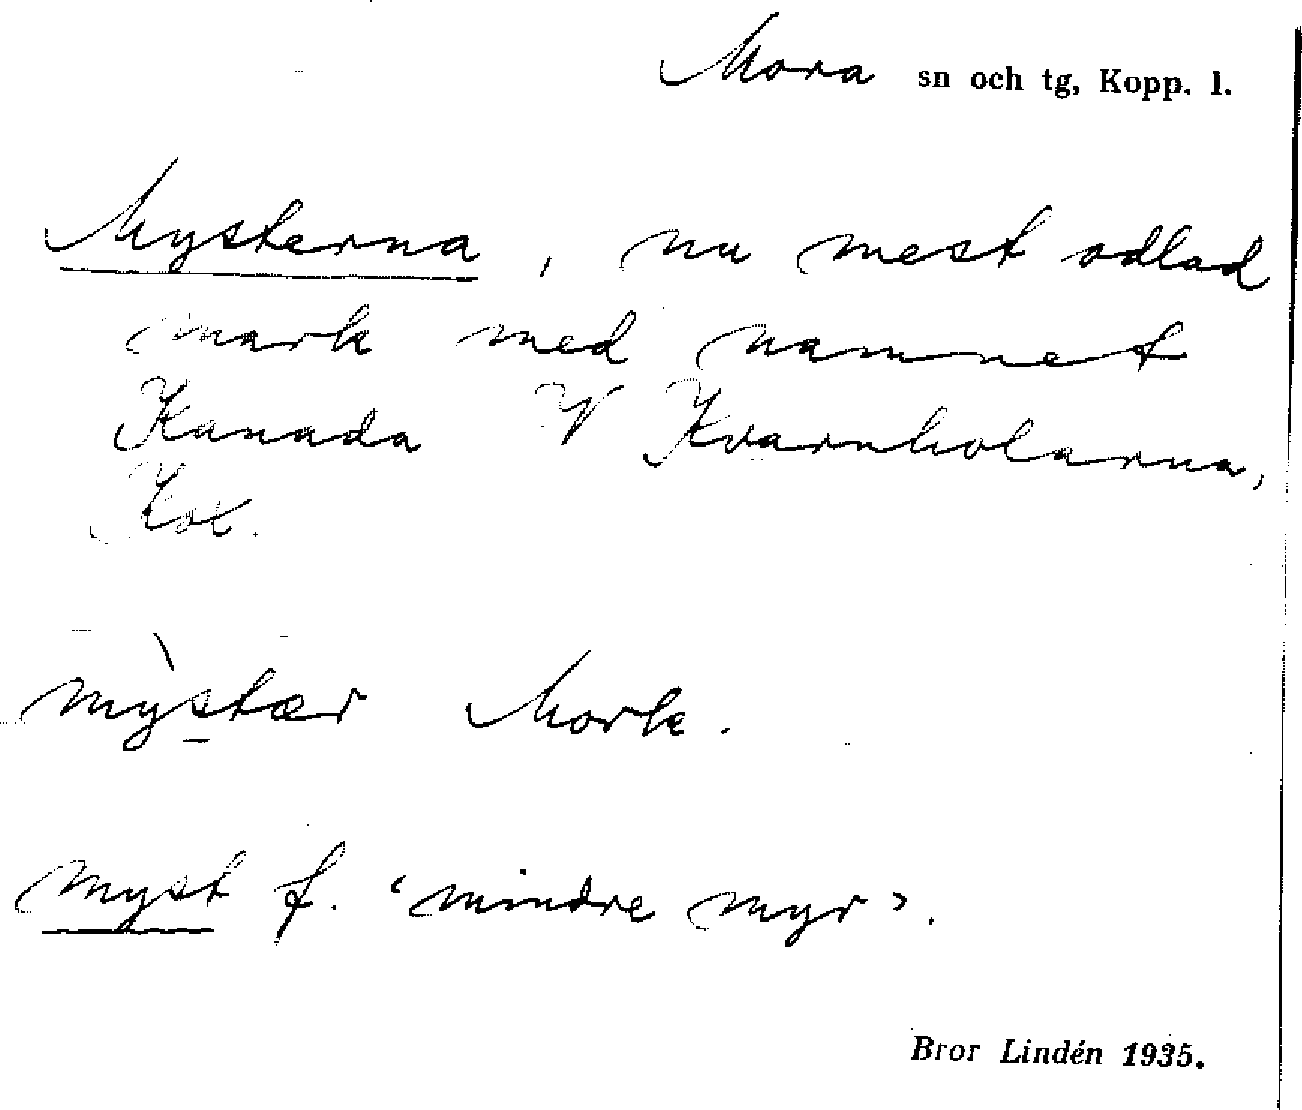 Mora sn och tg, Kopp. l.
Mysterna, nu mest odlad
mark med namnet
Kanada V Kvarnholarna,
mỳstær Mork.
myst f. ‘mindre myr’.
Bror Lindén 1935.